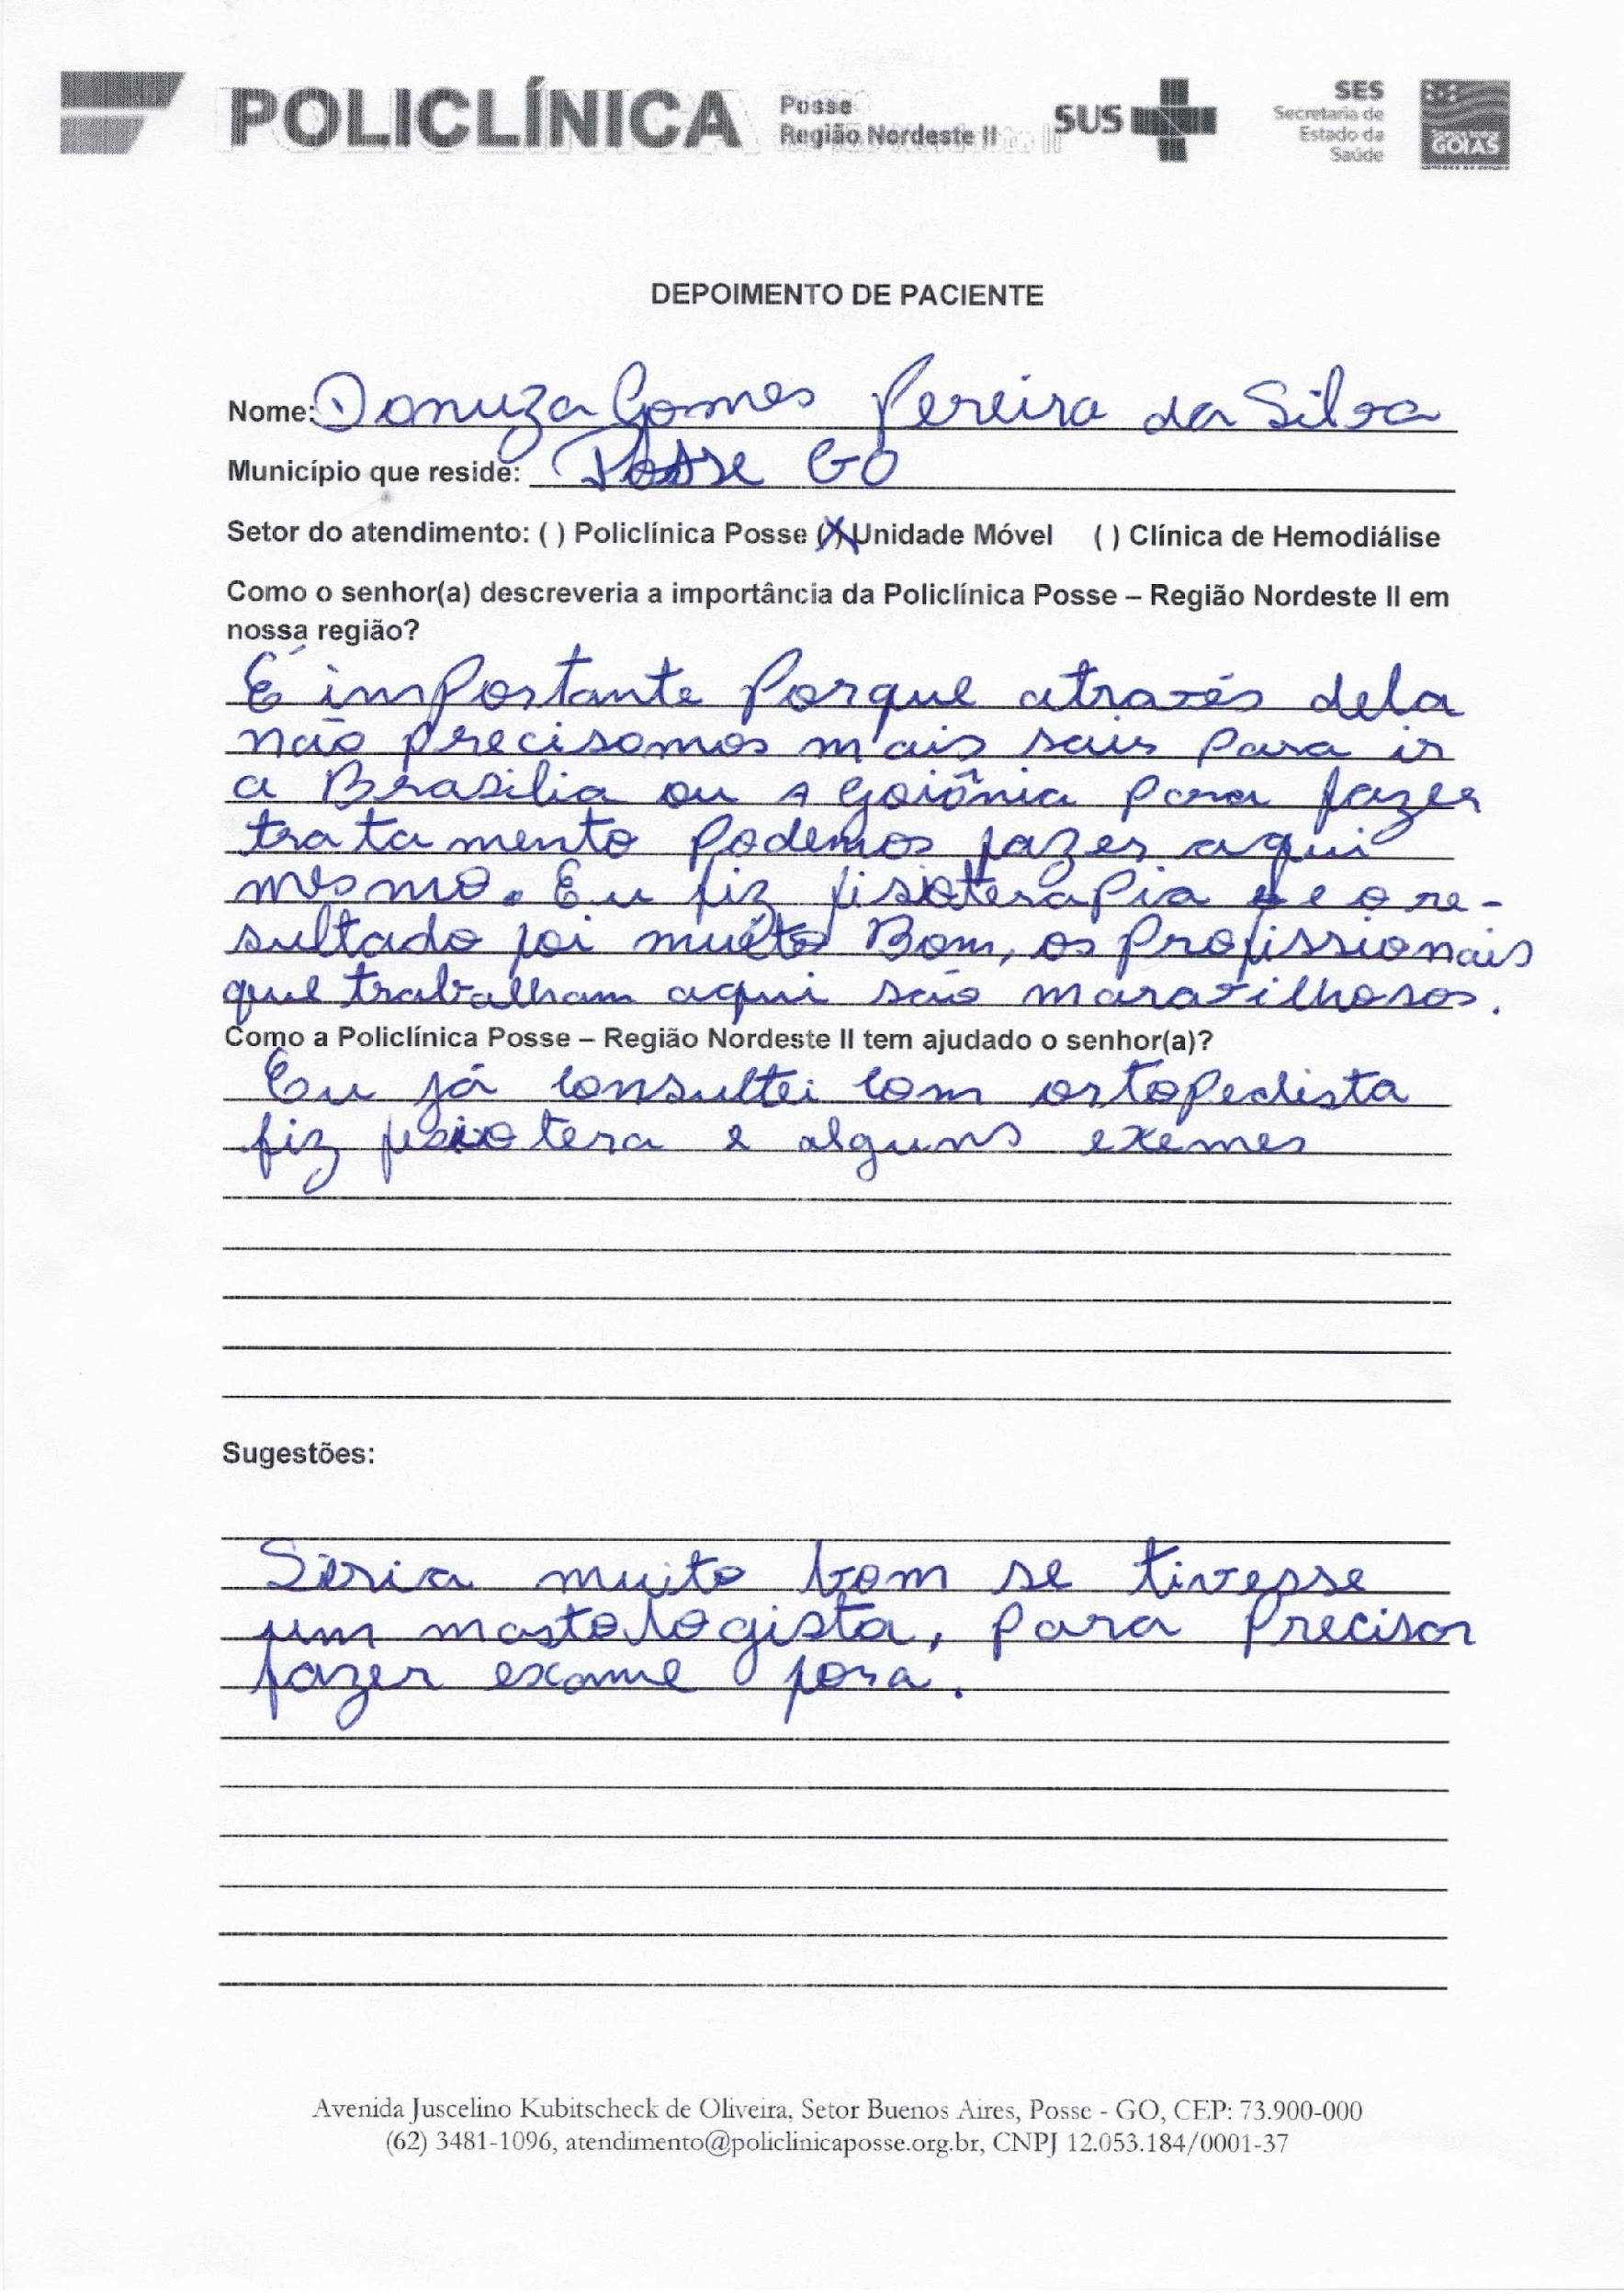 POLICLÍNICA
Posse
Região Nordeste II
SUS
SES
Secretaria de
Estado da
Saúde
GOIÁS
DEPOIMENTO DE PACIENTE
Nome: Donuza Gomes Pereira da Silva
Município que reside: Posse GO
Setor do atendimento: ( ) Policlínica Posse (X) Unidade Móvel ( ) Clínica de Hemodiálise
Como o senhor(a) descreveria a importância da Policlínica Posse – Região Nordeste II em
nossa região?
É importante Porque através dela
não precisamos mais sair Para ir
a Brasilia ou a Goiânia para fazer
tratamento Podemos fazer aqui
mesmo. Eu fiz fisioterapia e o re-
sultado foi muito Bom, os Profissionais
que trabalham aqui são maravilhosos.
Como a Policlínica Posse – Região Nordeste II tem ajudado o senhor(a)?
Eu já consultei com ortopedista
fiz fisiotera e alguns exemes
Sugestões:
Seria muito bom se tivesse
um mastologista, para Precisar
fazer exame fora.
Avenida Juscelino Kubitscheck de Oliveira, Setor Buenos Aires, Posse - GO, CEP: 73.900-000
(62) 3481-1096, atendimento@policlinicaposse.org.br, CNPJ 12.053.184/0001-37